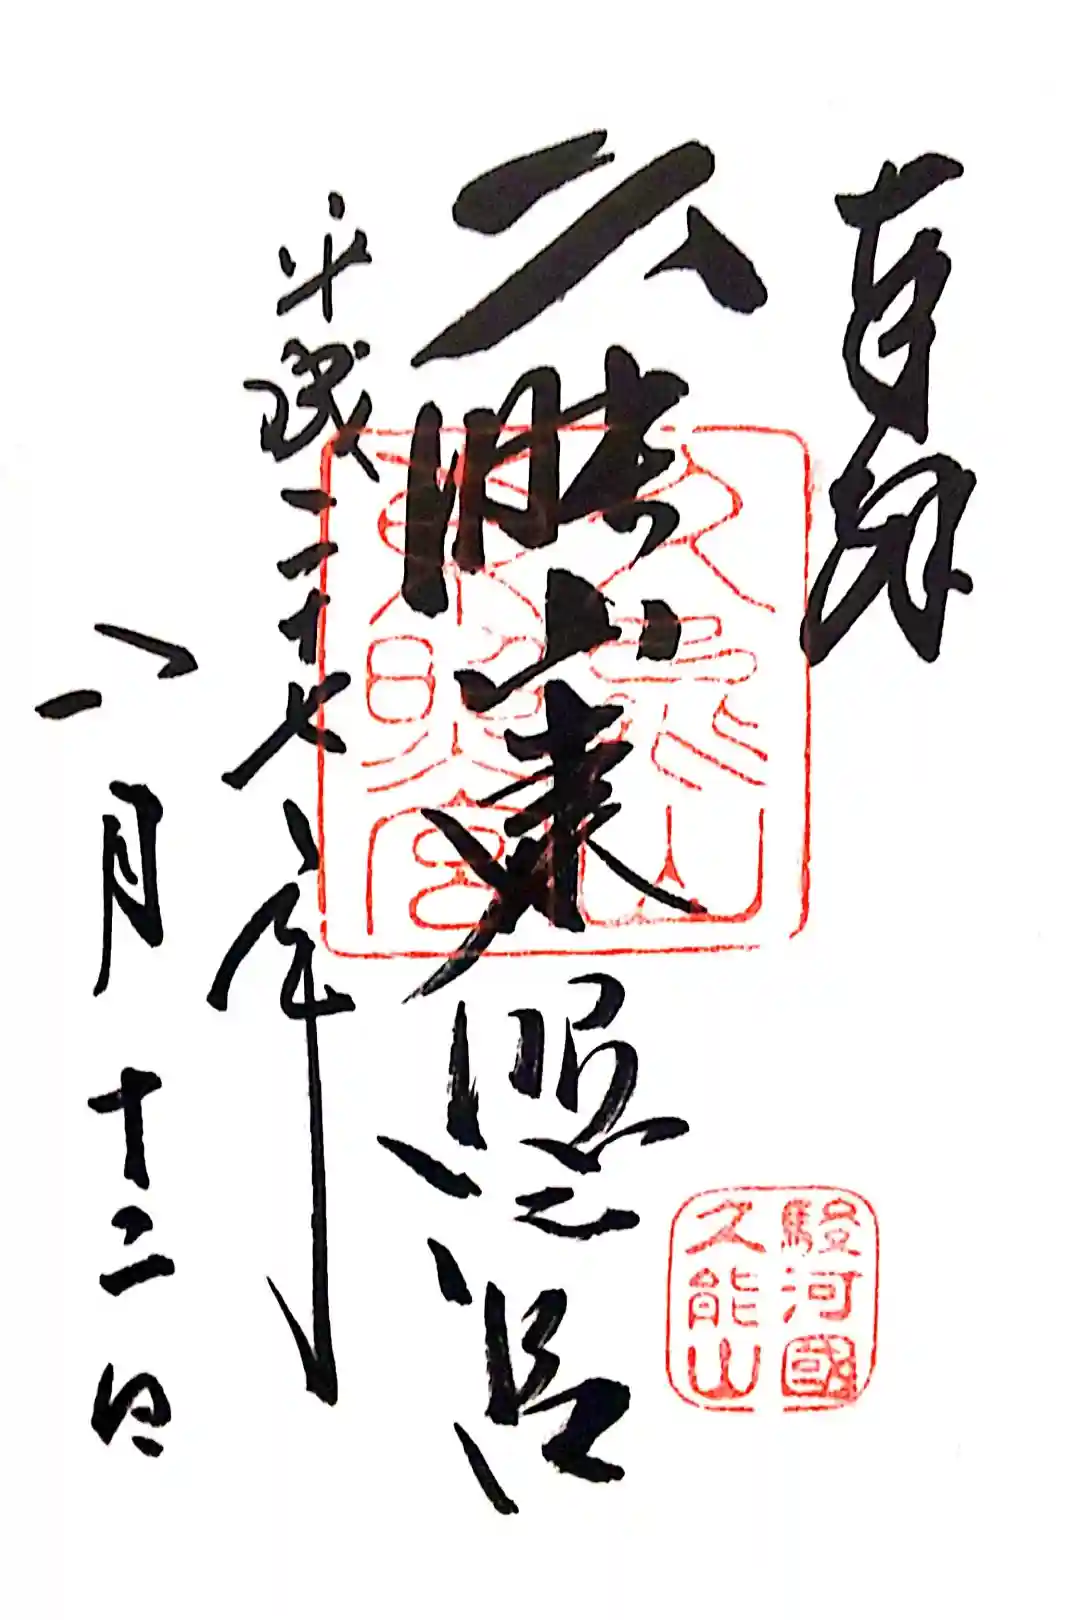 奉拝
久能山東照宮
平成二十七年
八月十二日
久能山
東照宮
駿河國
久能山